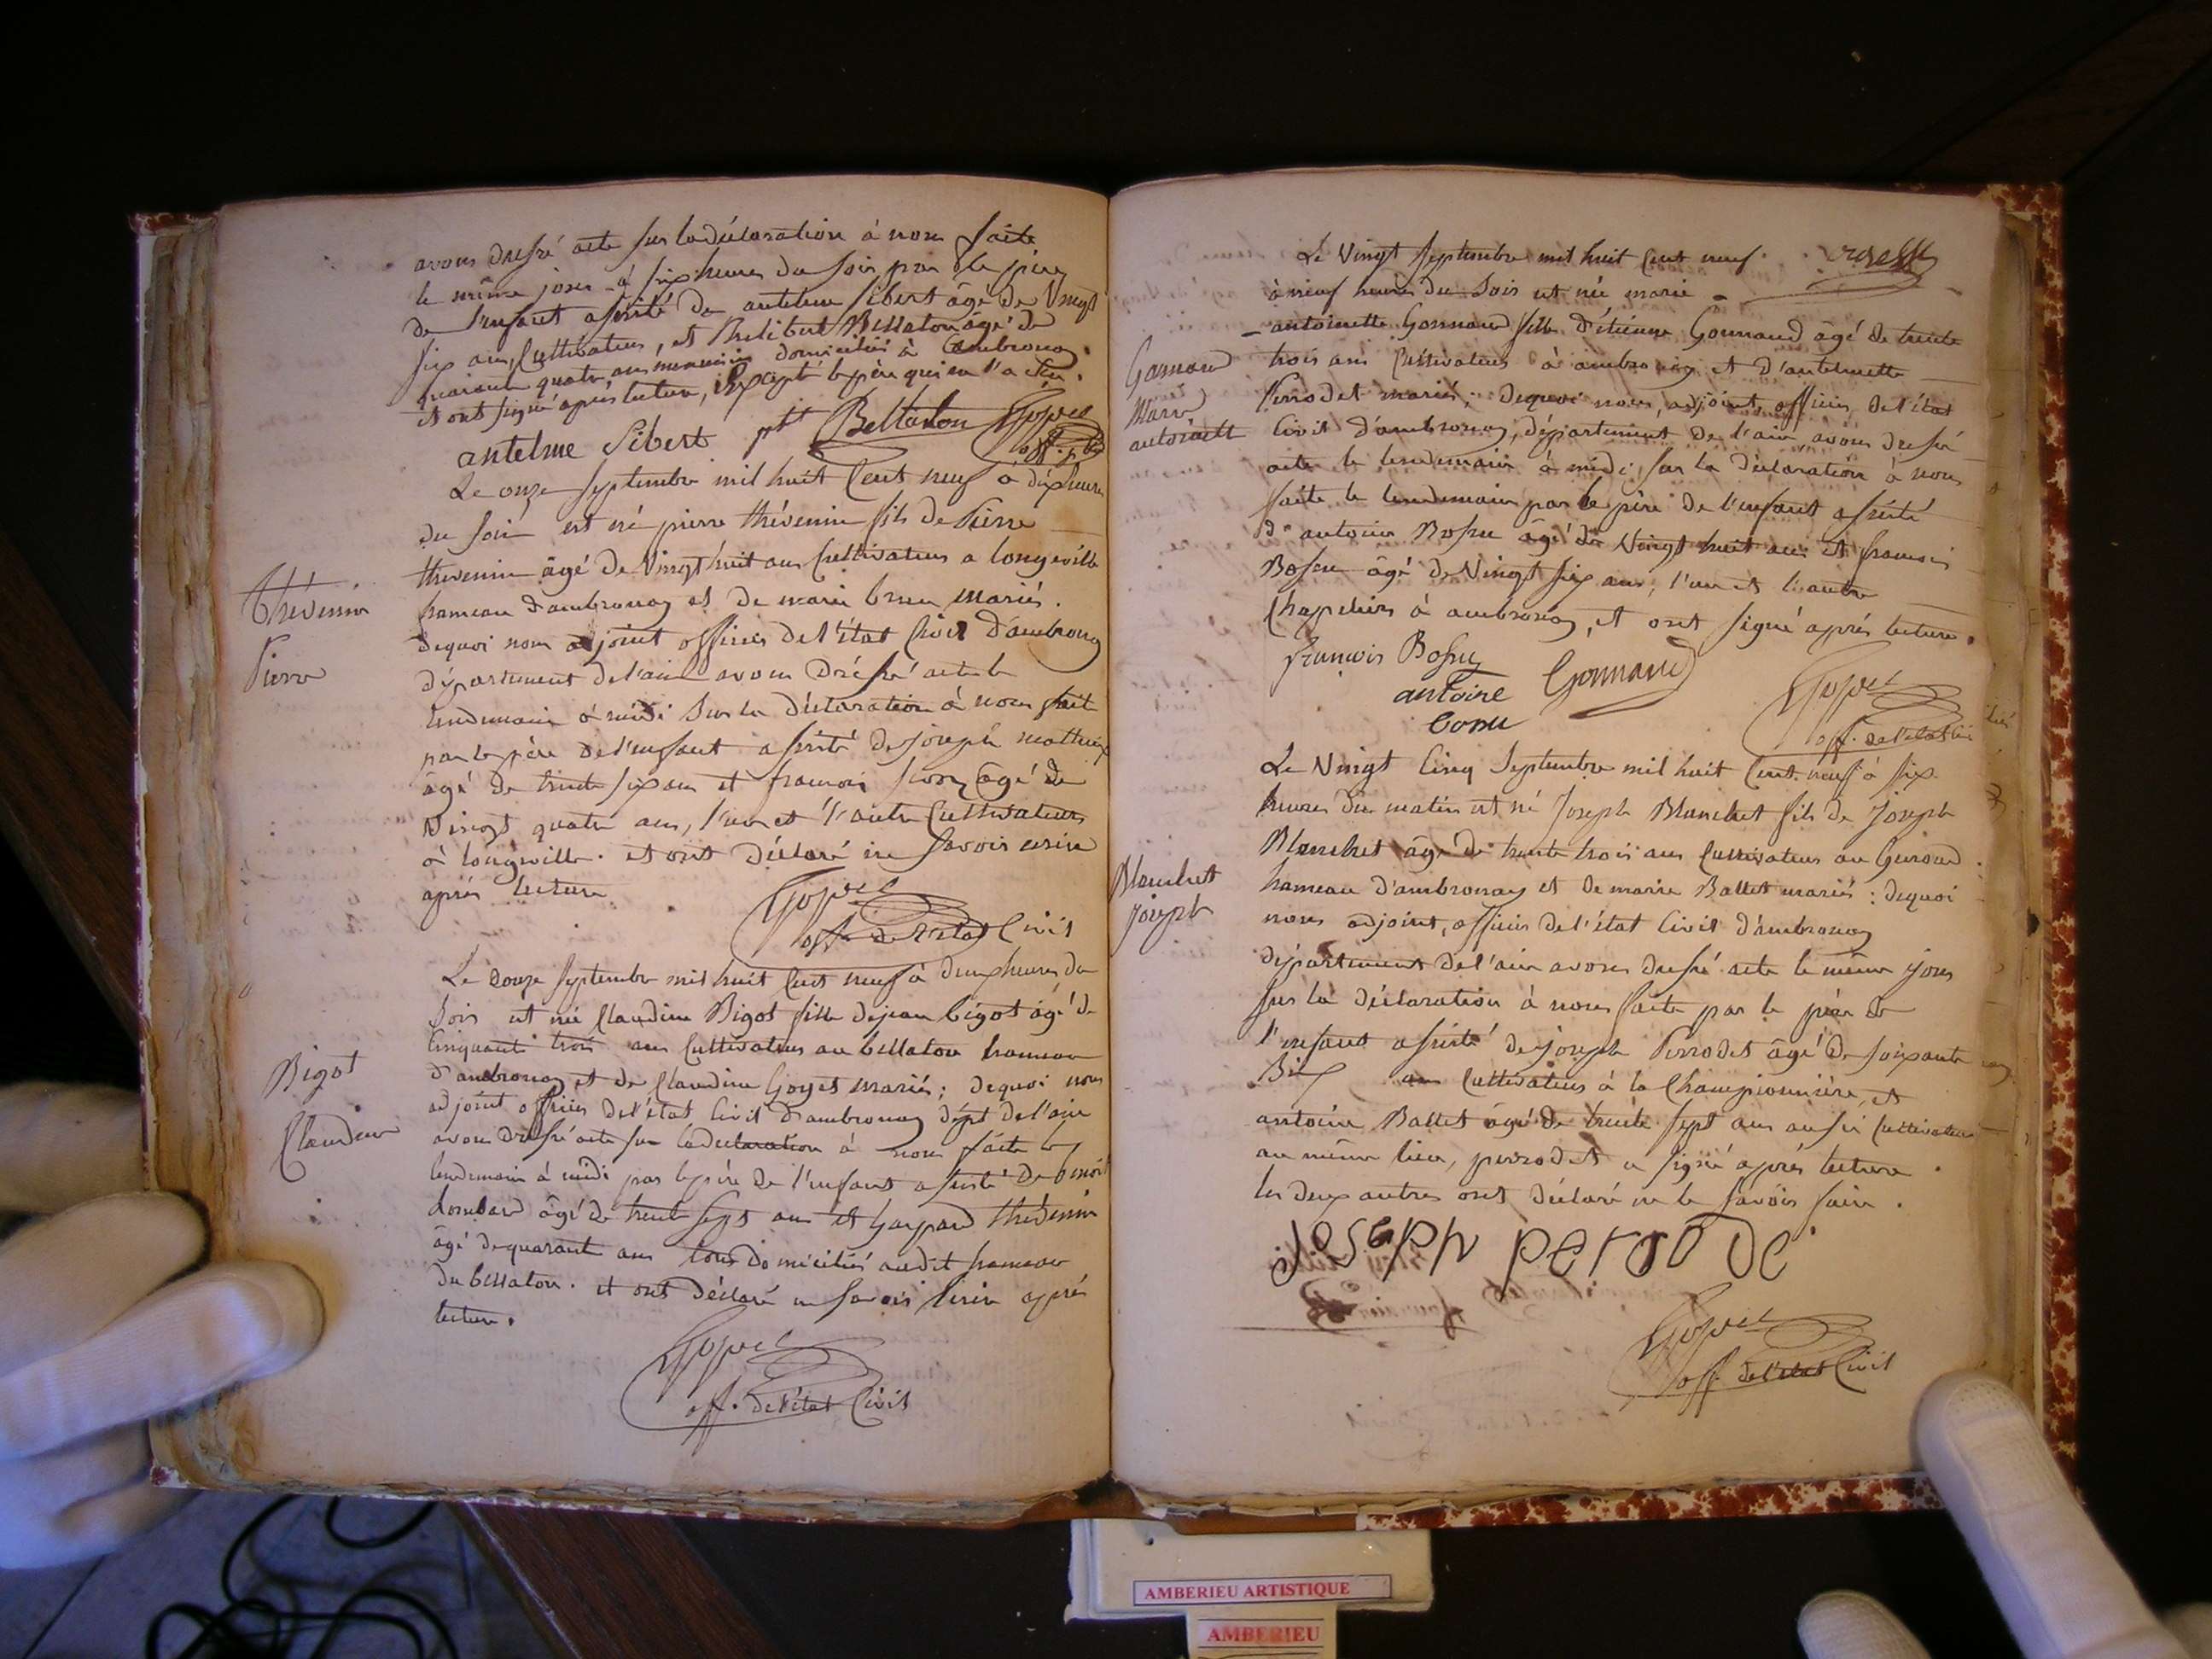 avons dressé acte sur la déclaration à nous faite
le même jour à six heures du soir par le père
de l'enfant assisté de antelme Sibert âgé de Vingt
six ans, Cultivateur, et Philibert Bellaton âgé de
quarante quatre ans domiciliés à ambronay.
et ont signé après lecture, Excepté le père qui en l'a
antelme Sibert pt Bellaton
Le onze Septembre mil huit Cent neuf à dix heures
du soir est né pierre thévenin fils de Pierre
thevenin âgé de Vingt huit ans Cultivateur a longeville
hameau d'ambronay et de marie brun mariés.
Thévenin
Pierre
dequoi nous adjoint officier de l'état Civil d'ambronay
département de l'ain avons dréssé acte le
lendemain à midi Sur la déclaration à nous fait
par le père de l'enfant assisté de joseph mathieu
âgé de trente six ans et francois âgé de
Vingt quatre ans, l'un et l'autre Cultivateurs
à longeville. et ont déclaré ne Savoir ecrire
après lecture
off. de l'etat Civil
Le douze Septembre mil huit Cent neuf à deux heures du
Soir est née Claudine Bigot fille de jean bigot âgé de
Cinquante trois ans Cultivateur au bellaton hameau
Bigot
Claudine
d'ambronay et de Claudine Goyet mariés; dequoi nous
adjoint officier de l'état Civil d'ambronay dépt de l'ain
avons dressé acte sur la declaration à nous faite le
lendemain à midi par le père de l'enfant assisté de benoit
Lombard âgé de trente sept ans et Gaspard thévenin
âgé de quarante ans tous domiciliés audit hameau
du bellaton. et ont déclaré ne savoir Ecrire après
lecture.
off. de l'état Civil
Le Vingt Septembre mil huit Cent neuf.
à neuf heures du Soir est née marie
antoinette Gonnand fille d'étienne Gonnand âgé de trente
Gonnand
Marie
antoinette
trois ans Cultivateur à ambronay et d'antelmette
Perrodet mariés; dequoi nous, adjoint, officier de l'état
Civil d'ambronay, département de l'ain avons dressé
acte le lendemain à midi sur la déclaration à nous
faite le lendemain par le père de l'enfant assisté
d'antoine Bossu âgé de Vingt huit ans et francois
Bossu âgé de Vingt six ans, l'un et l'autre
Chapeliers à ambronay, et ont signé après lecture.
françois Bossu
antoine Gonnand
bossu
off. de l'etat Civil
Le Vingt Cinq Septembre mil huit Cent neuf à six
heures du matin est né Joseph Blanchet fils de Joseph
Blanchet âgé de trente trois ans Cultivateur au
Blanchet
joseph
hameau d'ambronay et de marie Ballet mariés: dequoi
nous adjoint, officier de l'état Civil d'ambronay
département de l'ain avons dressé acte le même jour
sur la déclaration à nous faite par le père de
l'enfant assisté de joseph Perrodet âgé de soixante
Dix ans Cultivateur à la Championnière, et
antoine Ballet âgé de trente sept ans aussi Cultivateur
au même lieu, perrodet a signé après lecture
les deux autres ont déclaré ne le savoir faire.
Joseph perrode
off. de l'etat Civil
AMBERIEU ARTISTIQUE
AMBERIEU